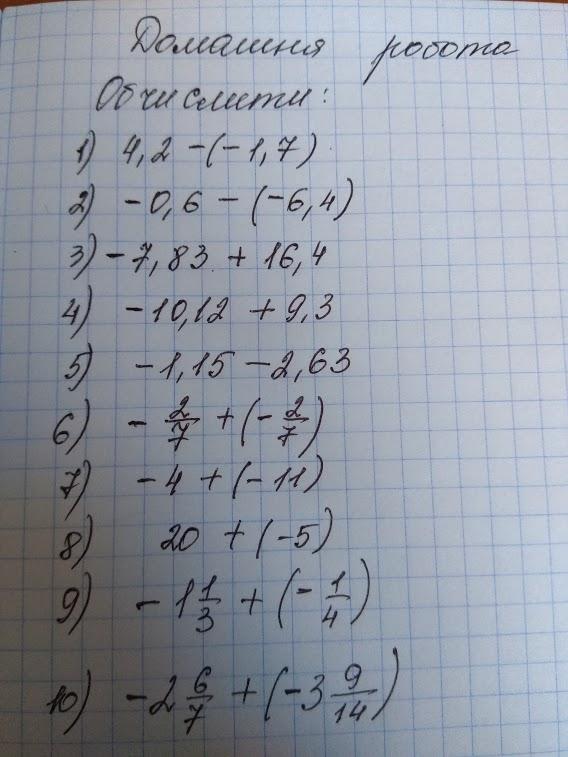 Домашня робота
Обчислити:
1) 4,2 - (-1,7)
2) -0,6 - (-6,4)
3) -7,83 + 16,4
4) -10,12 + 9,3
5) -1,15 - 2,63
6) - 2/7 + (- 2/7)
7) -4 + (-11)
8) 20 + (-5)
9) - 1 1/3 + (- 1/4)
10) -2 6/7 + (-3 9/14)